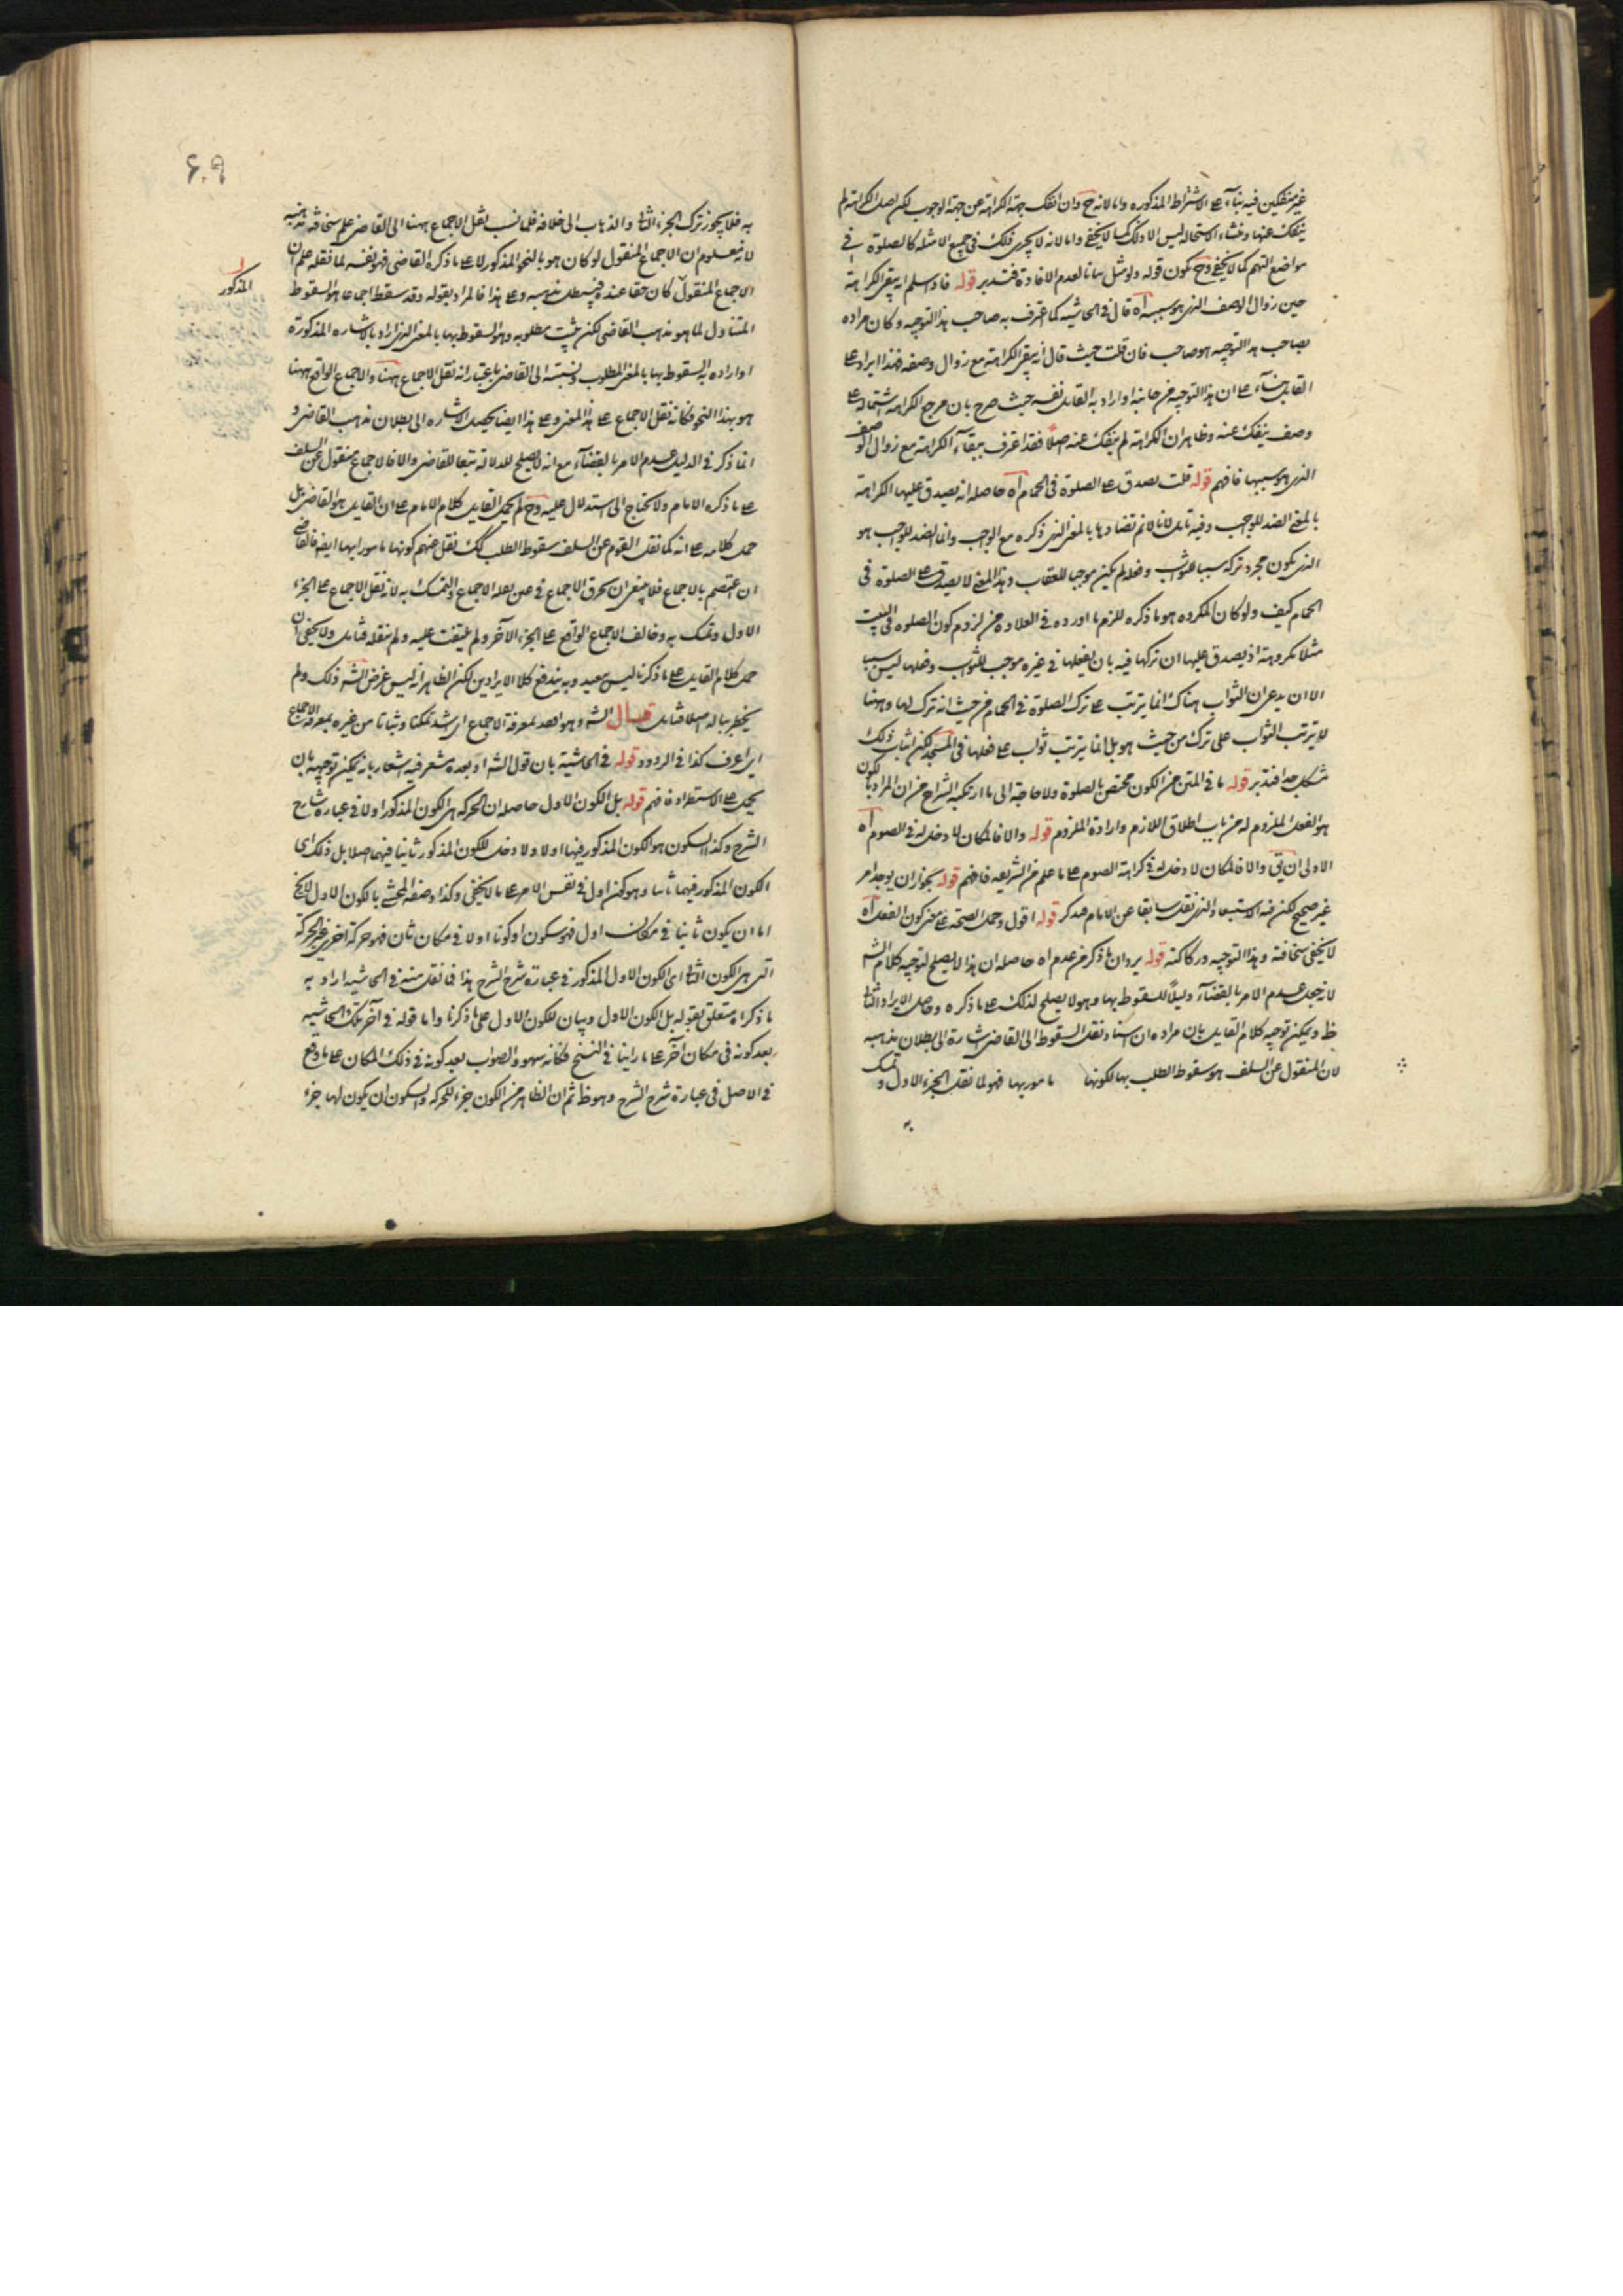 غير منفكين فيه بناء على الاشتراط المذكوره واما لانه ح وان انفك جهة الكراهة عن جهة الوجوب لكن اصل الكراهة لم
ينفك عنها ومنشاء الاستحاله ليس الا ذلك كما لا يخفى واما لانه لا يجرى ذلك فى جميع الامثله كالصلوة فى
مواضع التهم كما لا يخفى وح يكون قوله ولو مثل لعدم الافادة فتدبر قوله فاد سلم انه يبقى الكراهة
حين زوال الوصف الذى هو سببه آه قال فى الحاشيه كما اعترف به صاحب هذا التوجيه وكان مراده
بصاحب هذا التوجيه هو صاحب فان قلت حيث قال انه يبقى الكراهة مع زوال وصفه فهذا ايراد على
القايل بناء على ان هذا التوجيه من جانبه او اراد به القايل نفسه حيث صرح بان مرجع الكراهة اشتماله على
وصف ينفك عنه وظاهر ان الكراهة لم ينفك عنه اصلا فقد اعترف ببقاء الكراهة مع زوال الوصف
الذى هو سببها فافهم قوله قلت يصدق على الصلوة فى الحمام آه حاصله انه يصدق عليها الكراهة
بالمعنى الضد للوجب وفيه تامل لانا لانم تضادها بالمعنى الذى ذكره مع الوجب وانما الضد للوجب هو
الذى يكون مجرد تركه سببا للثواب وفعله لم يكن موجبا للعقاب وهذا المعنى لا يصدق على الصلوة فى
الحمام كيف ولو كان المكروه هو ما ذكره للزم ما اورده فى العلاوه من لزوم كون الصلوه فى البيت
مثلا مكروهة اذ يصدق عليها ان تركها فيه بان يفعلها فى غيره موجب للثواب وفعلها ليس سببا
الا ان يدعى ان الثواب هناك انما يترتب على ترك الصلوة فى الحمام من حيث انه ترك لها وههنا
لا يترتب الثواب على ترك من حيث هو بل انما يترتب ثواب على فعلها فى المسجد لكن اثبات ذلك
مشكل جدا فتدبر قوله ما فى المتن من الكون مختص بالصلوة ولا حاجة الى ما ارتكبه الشراح من ان المراد بالكون
هو الفعل الملزوم له من باب اطلاق اللازم وارادة الملزوم قوله والا فالمكان لا دخل له فى الصوم آه
الاولى ان يق والا فالمكان لا دخل له فى كراهة الصوم على ما علم من الشريعه فافهم قوله بجواز ان يوجد امر
غير صحيح لكن فيه الاستبعاد الذى نقل سابقا عن الامام فتذكر قوله اقول وحمل الصحة على معنى كون الفعل آه
لا يخفى سخافته وهذا التوجيه وركاكته قوله يرد ان ما ذكر من عدم آه حاصله ان هذا لا يصلح لتوجيه كلام الش
لانه جعل عدم الامر بالقضاء دليلا للسقوط بها وهو لا يصلح لذلك على ما ذكره وحاصل الايراد الثانى
ظ ويمكن توجيه كلام القايل بان مراده ان اسناد نقل السقوط الى القاضى اشارة الى بطلان مذهبه
لان المنقول عن السلف هو سقوط الطلب بها لكونها مامور بها فهو لما نقل الجزء الاول وتمسك
به
۶۰۹
به فلا يجوز ترك الجزء الثانى والذهاب الى خلافه فلما نسب نقل الاجماع ههنا الى القاضى علم سخافة مذهبه
لانه معلوم ان الاجماع المنقول لو كان هو بالنحو المذكور لا على ما ذكره القاضى فهو نفسه لما نقله علم ان
المذكور
الاجماع المنقول كان حقا عنده فيبطل مذهبه وعلى هذا فالمراد بقوله وقد سقط اجماعا هو السقوط
المتناول لما هو مذهب القاضى لكن يثبت مطلوبه وهو السقوط بها بالمعنى الذى اراد بالاشاره المذكورة
او اراده به السقوط بها بالمعنى المطلوب ونسبته الى القاضى باعتبار انه نقل الاجماع ههنا والاجماع الواقع ههنا
هو بهذا النحو فكانه نقل الاجماع على هذا المعنى وعلى هذا ايضا يحصل الاشاره الى بطلان مذهب القاضى و
انما ذكر فى الدليل عدم الامر بالقضاء مع انه لا يصلح للدلالة تبعا للقاضى والا فالاجماع منقول عن السلف
على ما ذكره الامام ولا يحتاج الى استدلال عليه وح لم يحمل القايل كلام الامام على ان القايل هو القاضى بل
حمل كلامه على انه كما نقل القوم عن السلف سقوط الطلب كك نقل عنهم كونها مامورا بها ايضه فالقاضى
ان اعتصم بالاجماع فلا ينبغى ان يخرق الاجماع فى عين نقله الاجماع والتمسك به لانه نقل الاجماع على الجزء
الاول وتمسك به وخالف الاجماع الواقع على الجزء الآخر ولم يلتفت عليه ولم ينقله فتامل ولا يخفى ان
حمل كلام القايل على ما ذكرنا ليس ببعيد وبه يندفع كلا الايرادين لكن الظاهر انه ليس غرض الش ذلك ولم
يخطر بباله اصلا فتامل قال الش وهو اقعد بمعرفة الاجماع اى اشد تمكنا وثباتا من غيره بمعرفة الاجماع
اى اعرف كذا فى الردود قوله فى الحاشية بان قول الش او بعده مشعر فيه اشعار بانه يمكن توجيهه بان
يحمل على الاستطراد فافهم قوله بل الكون الاول حاصله ان الحركه هى الكون المذكور اولا فى عبارة شارح
الشرح وكذا السكون هو الكون المذكور فيها اولا ولا دخل للكون المذكور ثانيا فيهما اصلا بل ذلك اى
الكون المذكور فيهما ثانيا وهو كون اول فى نفس الامر على ما لا يخفى وكذا وصفه المحشى بالكون الاول لا يخ
اما ان يكون ثانيا فى مكان اول فهو سكون او كونا اولا فى مكان ثان فهو حركة اخرى غير الحركة
التى هى الكون الثانى اى الكون الاول المذكور فى عبارة شرح الشرح هذا فما نقل منه فى الحاشيه اراد به
ما ذكراه متعلق بقوله بل الكون الاول وبيان للكون الاول على ما ذكرنا واما قوله فى آخر تلك الحاشيه
بعد كونه فى مكان آخر على ما راينا فى النسخ فكانه سهو والصواب بعد كونه فى ذلك المكان على ما وقع
فى الاصل فى عبارة شرح الشرح وهو ظ ثم ان الظاهر من الكون جزء للحركه والسكون ان يكون لها جزء